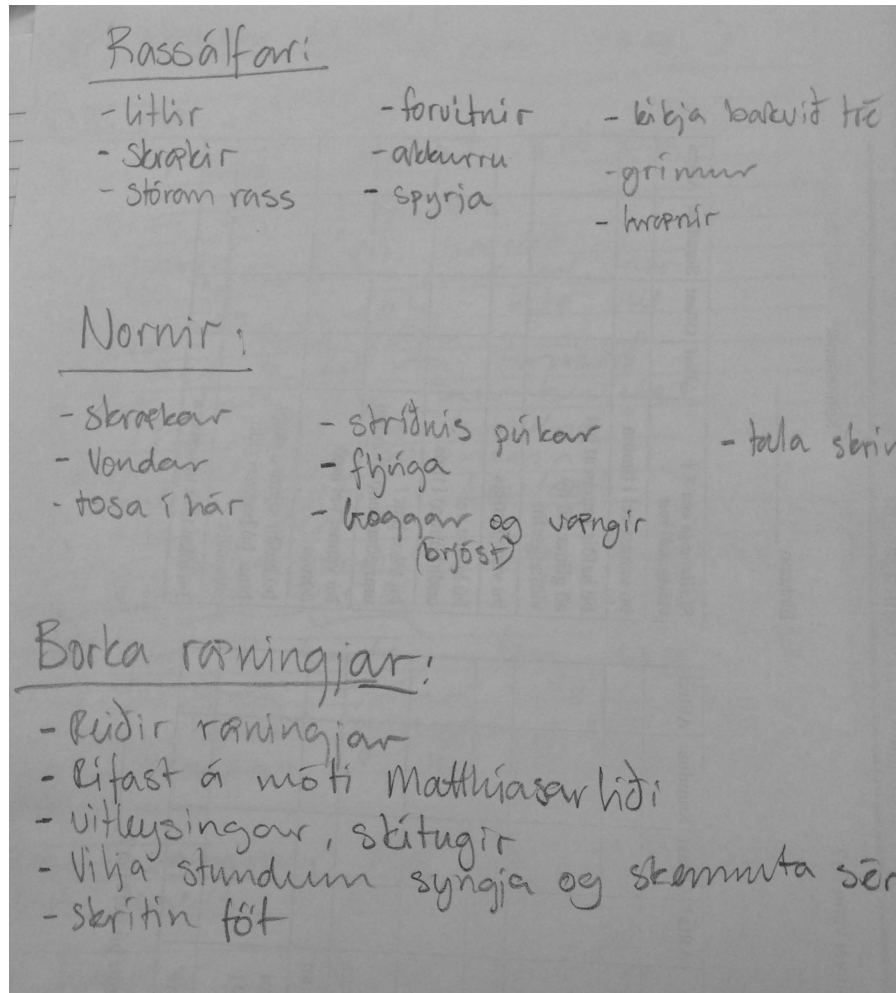 Rassálfar:
- litlir
- skrækir
- stóran rass
- forvitnir
- akkurru
- spyrja
- kíkja bakvið tré
- grímur
- hræpnir
Nornir:
- skrækar
- Vondar
- tosa í hár
- stríðnis púkar
- fljúga
- goggar og vængir
(brjóst)
- tala
Borka ræningjar:
- Reiðir ræningjar
- Rífast á móti Matthíasar liði
- vitleysingar, skítugir
- Vilja stundum syngja og skemmta sér
- skrítin föt